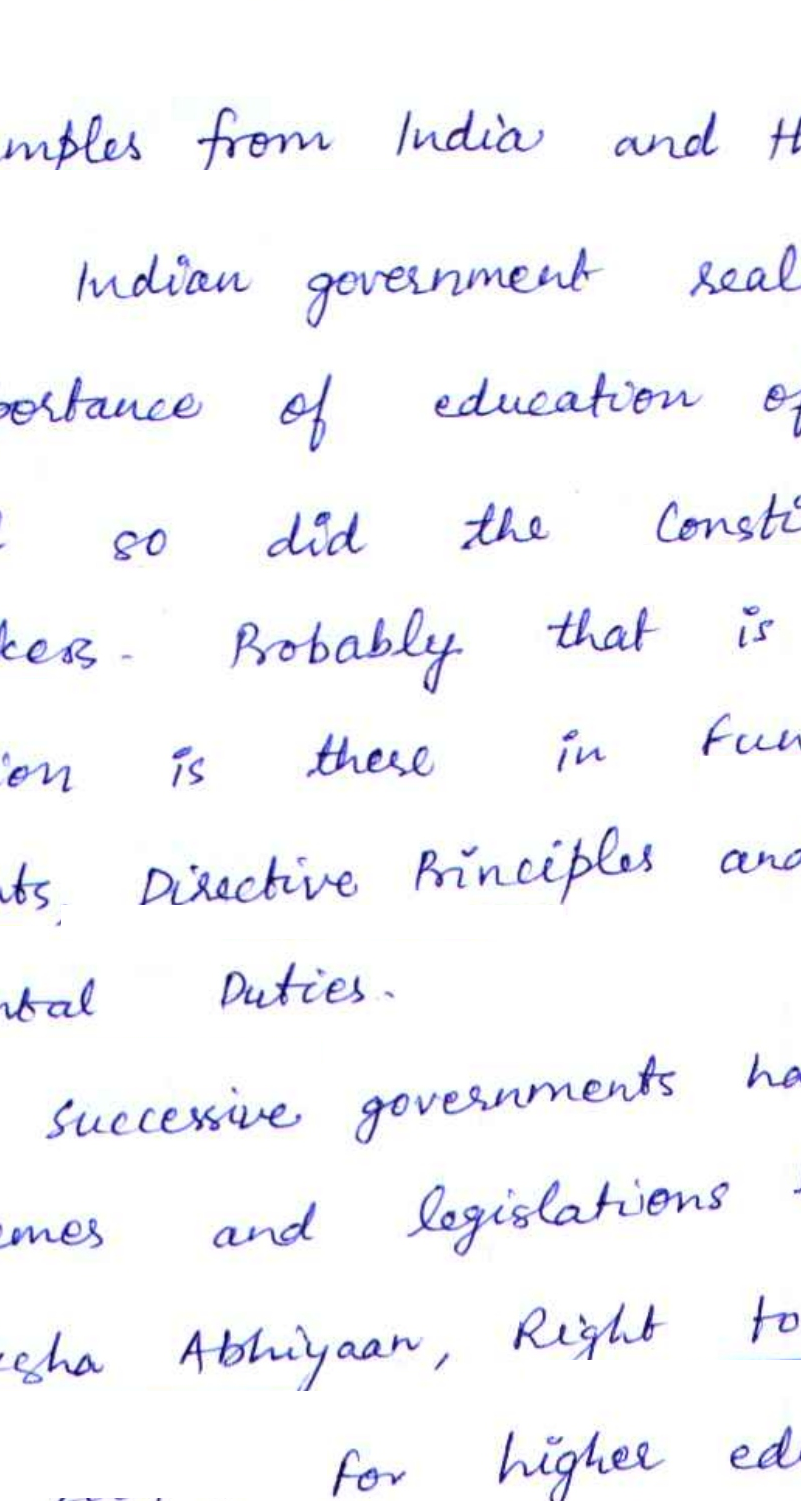 mples from India and H
Indian government real
portance of education of
so did the Consti
kers. Probably that is
ion is there in Fun
nts, Directive Principles and
ntal Duties.
Successive governments ha
emes and legislations
ksha Abhiyaan, Right to
For higher edu